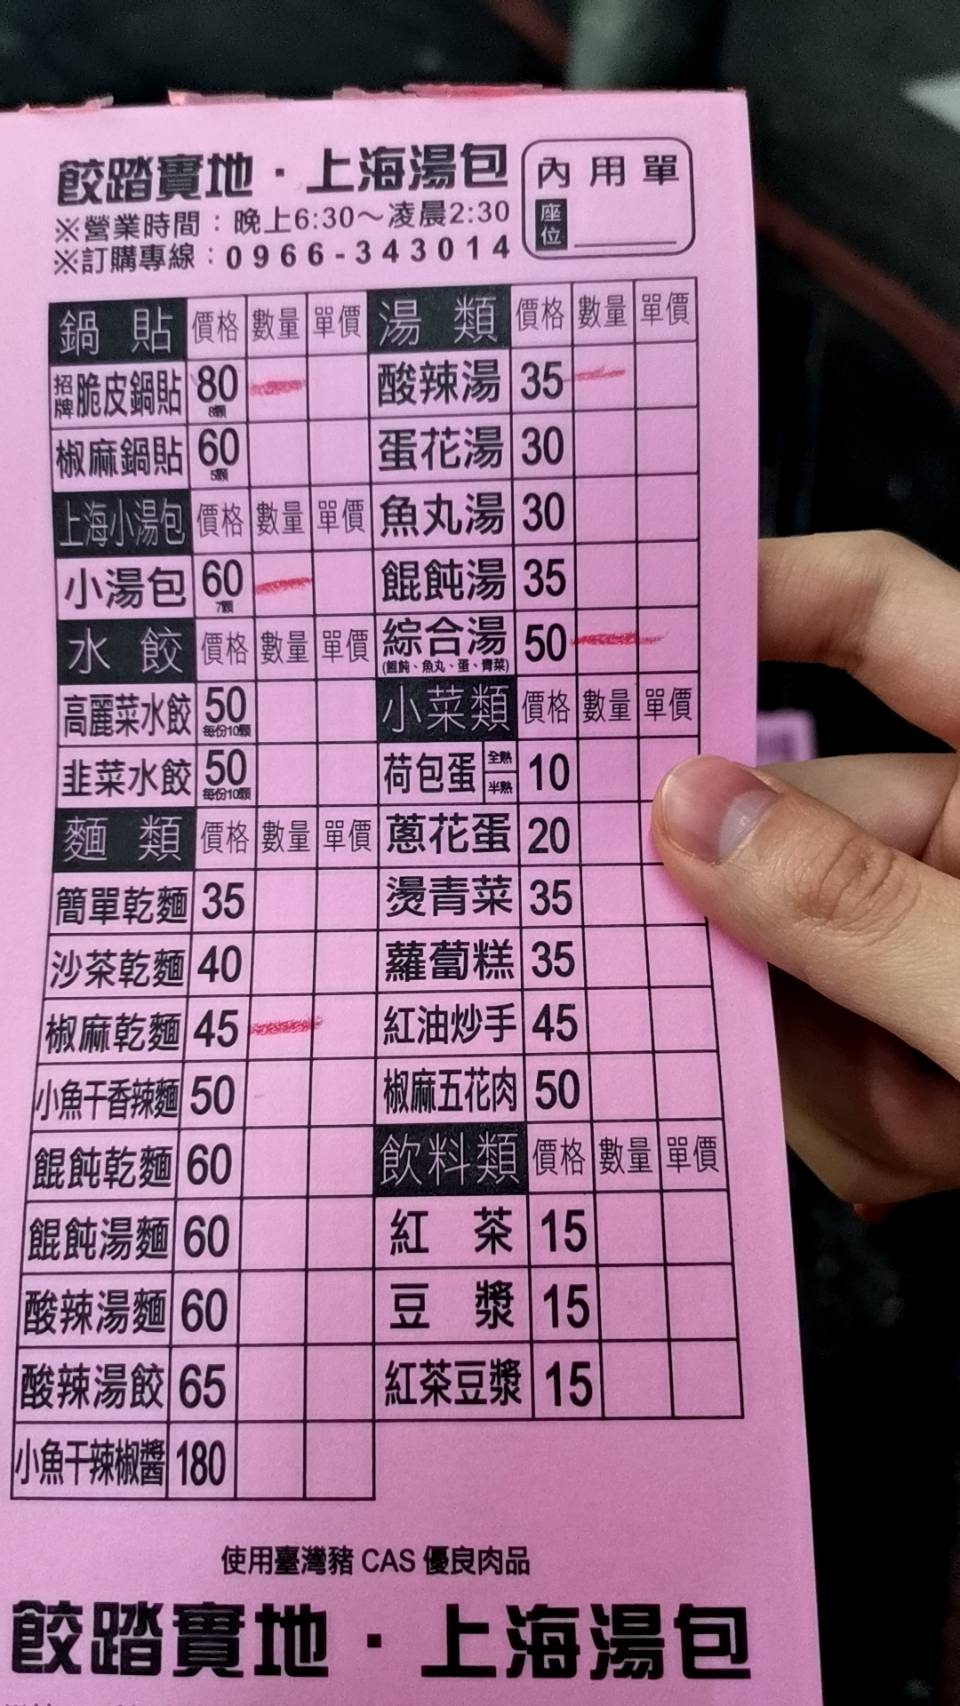 餃踏實地·上海湯包
※營業時間：晚上6:30～凌晨2:30
※訂購專線：0966-343014
內用單
座位
鍋貼 價格 數量 單價
招牌脆皮鍋貼 80 8顆
椒麻鍋貼 60 5顆
上海小湯包 價格 數量 單價
小湯包 60 7顆
水餃 價格 數量 單價
高麗菜水餃 50 每份10顆
韭菜水餃 50 每份10顆
麵類 價格 數量 單價
簡單乾麵 35
沙茶乾麵 40
椒麻乾麵 45
小魚干香辣麵 50
餛飩乾麵 60
餛飩湯麵 60
酸辣湯麵 60
酸辣湯餃 65
小魚干辣椒醬 180
湯類 價格 數量 單價
酸辣湯 35
蛋花湯 30
魚丸湯 30
餛飩湯 35
綜合湯 50
(餛飩、魚丸、蛋、青菜)
小菜類 價格 數量 單價
荷包蛋 全熟 半熟 10
蔥花蛋 20
燙青菜 35
蘿蔔糕 35
紅油炒手 45
椒麻五花肉 50
飲料類 價格 數量 單價
紅茶 15
豆漿 15
紅茶豆漿 15
使用臺灣豬 CAS 優良肉品
餃踏實地·上海湯包